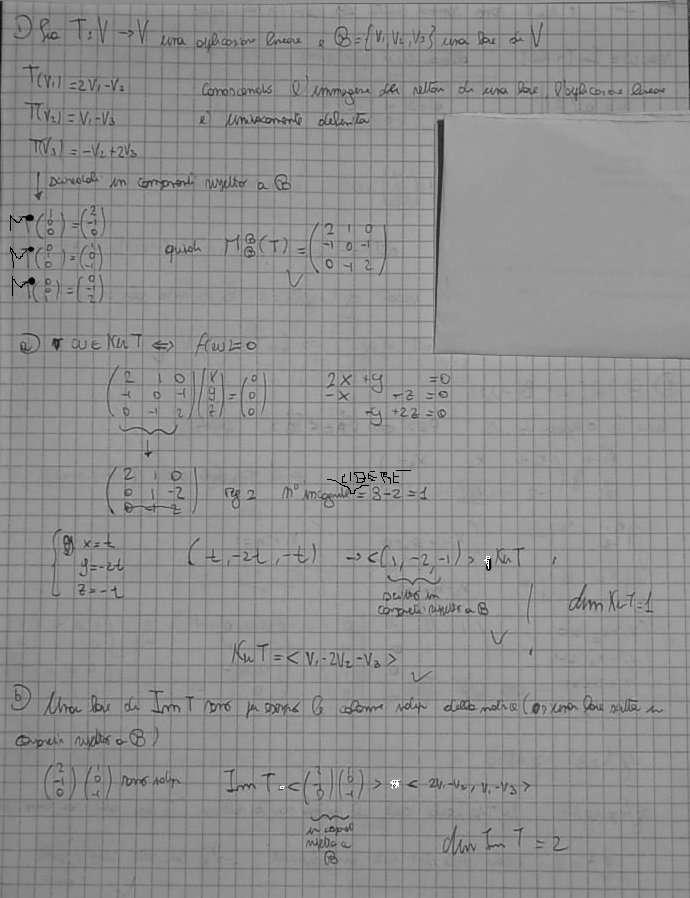 1) Sia T: V → V una applicazione lineare e B = {V₁, V₂, V₃} una base di V
T(V₁) = 2V₁ - V₂ Conoscendo l'immagine dei vettori di una base, l'applicazione lineare
T(V₂) = V₁ - V₃ è univocamente definita
T(V₃) = -V₂ + 2V₃
↓ in componenti rispetto a B
M (1 0 0) = (2 -1 0)
M (0 1 0) = (1 0 -1) quindi M_B^B (T) = (2 1 0 / -1 0 -1 / 0 -1 2)
M (0 0 1) = (0 -1 2)
a) w ∈ Ker T ⟺ f(w) = 0
(2 1 0 / -1 0 -1 / 0 -1 2) (x y z) = (0 0 0)
2x + y = 0
-x - z = 0
-y + 2z = 0
↓
LIBERE
(2 1 0 / 0 1 -2 / 0 -1 2) rg 2 n° incognite = 3 - 2 = 1
x = t
y = -2t
z = -t
(t, -2t, -t) → <(1, -2, -1)> Ker T
scritto in
componenti rispetto a B
dim Ker T = 1
Ker T = <V₁ - 2V₂ - V₃>
b) Una base di Im T sono per esempio le colonne indip della matrice (è una base scritta in
componenti rispetto a B)
(2 -1 0) (1 0 -1) sono indip Im T = <(2 -1 0) (1 0 -1)> = <2V₁ - V₂, V₁ - V₃>
in comp
rispetto a
B
dim Im T = 2